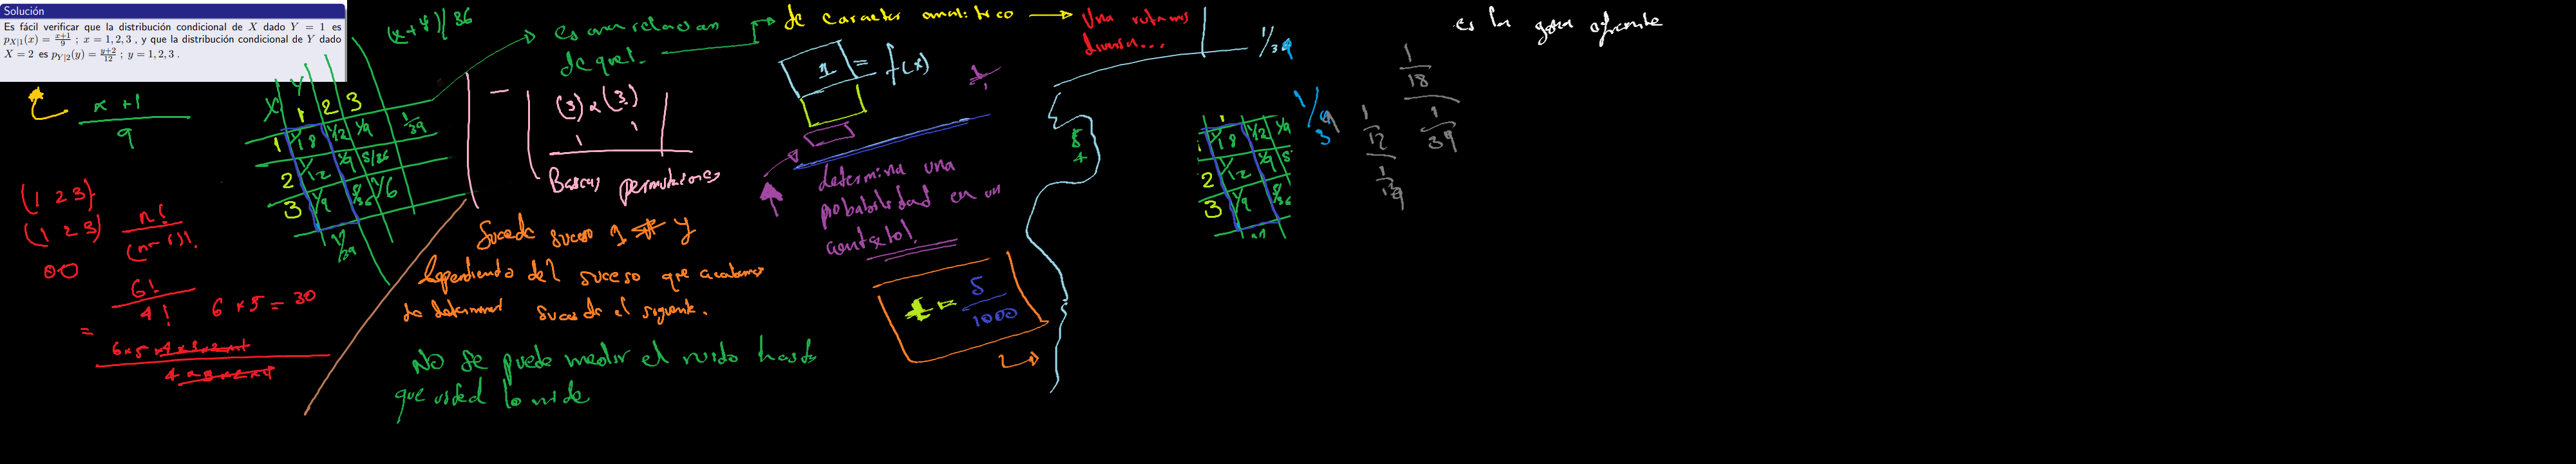 Solución
Es fácil verificar que la distribución condicional de X dado Y = 1 es
p_{X|1}(x) = \frac{x+1}{9} ; x = 1, 2, 3 , y que la distribución condicional de Y dado
X = 2 es p_{Y|2}(y) = \frac{y+2}{12} ; y = 1, 2, 3 .
(x+y)/36
es una relacion
de que!.
de caracter analitico
Una rutamos
diversa...
1/39
x +1
9
X Y
1 2 3
1 1/18 1/12 1/9 1/39
2 1/12 1/9 5/36
3 1/9 5/36 1/6
1/39
(3) x (3)
1 1
Buscas permutaciones
1 = f(x)
determina una
probabilidad en un
contexto!
(1 2 3)
(1 2 3)
n!
(n-r)!
6!
4!
6 x 5 = 30
=
6x5x4x3x2x1
4x3x2x1
Suceda suceso 1 y
dependiendo del suceso que acabamos
de determinar suceda el siguiente.
No se puede medir el ruido hasta
que usted lo mide
= 5/1000
8
4
1
1/18 1/12 1/9
2 1/12 1/9 5
3 1/9 5/36
1/9
3
1/12
1/18
1/39
es la